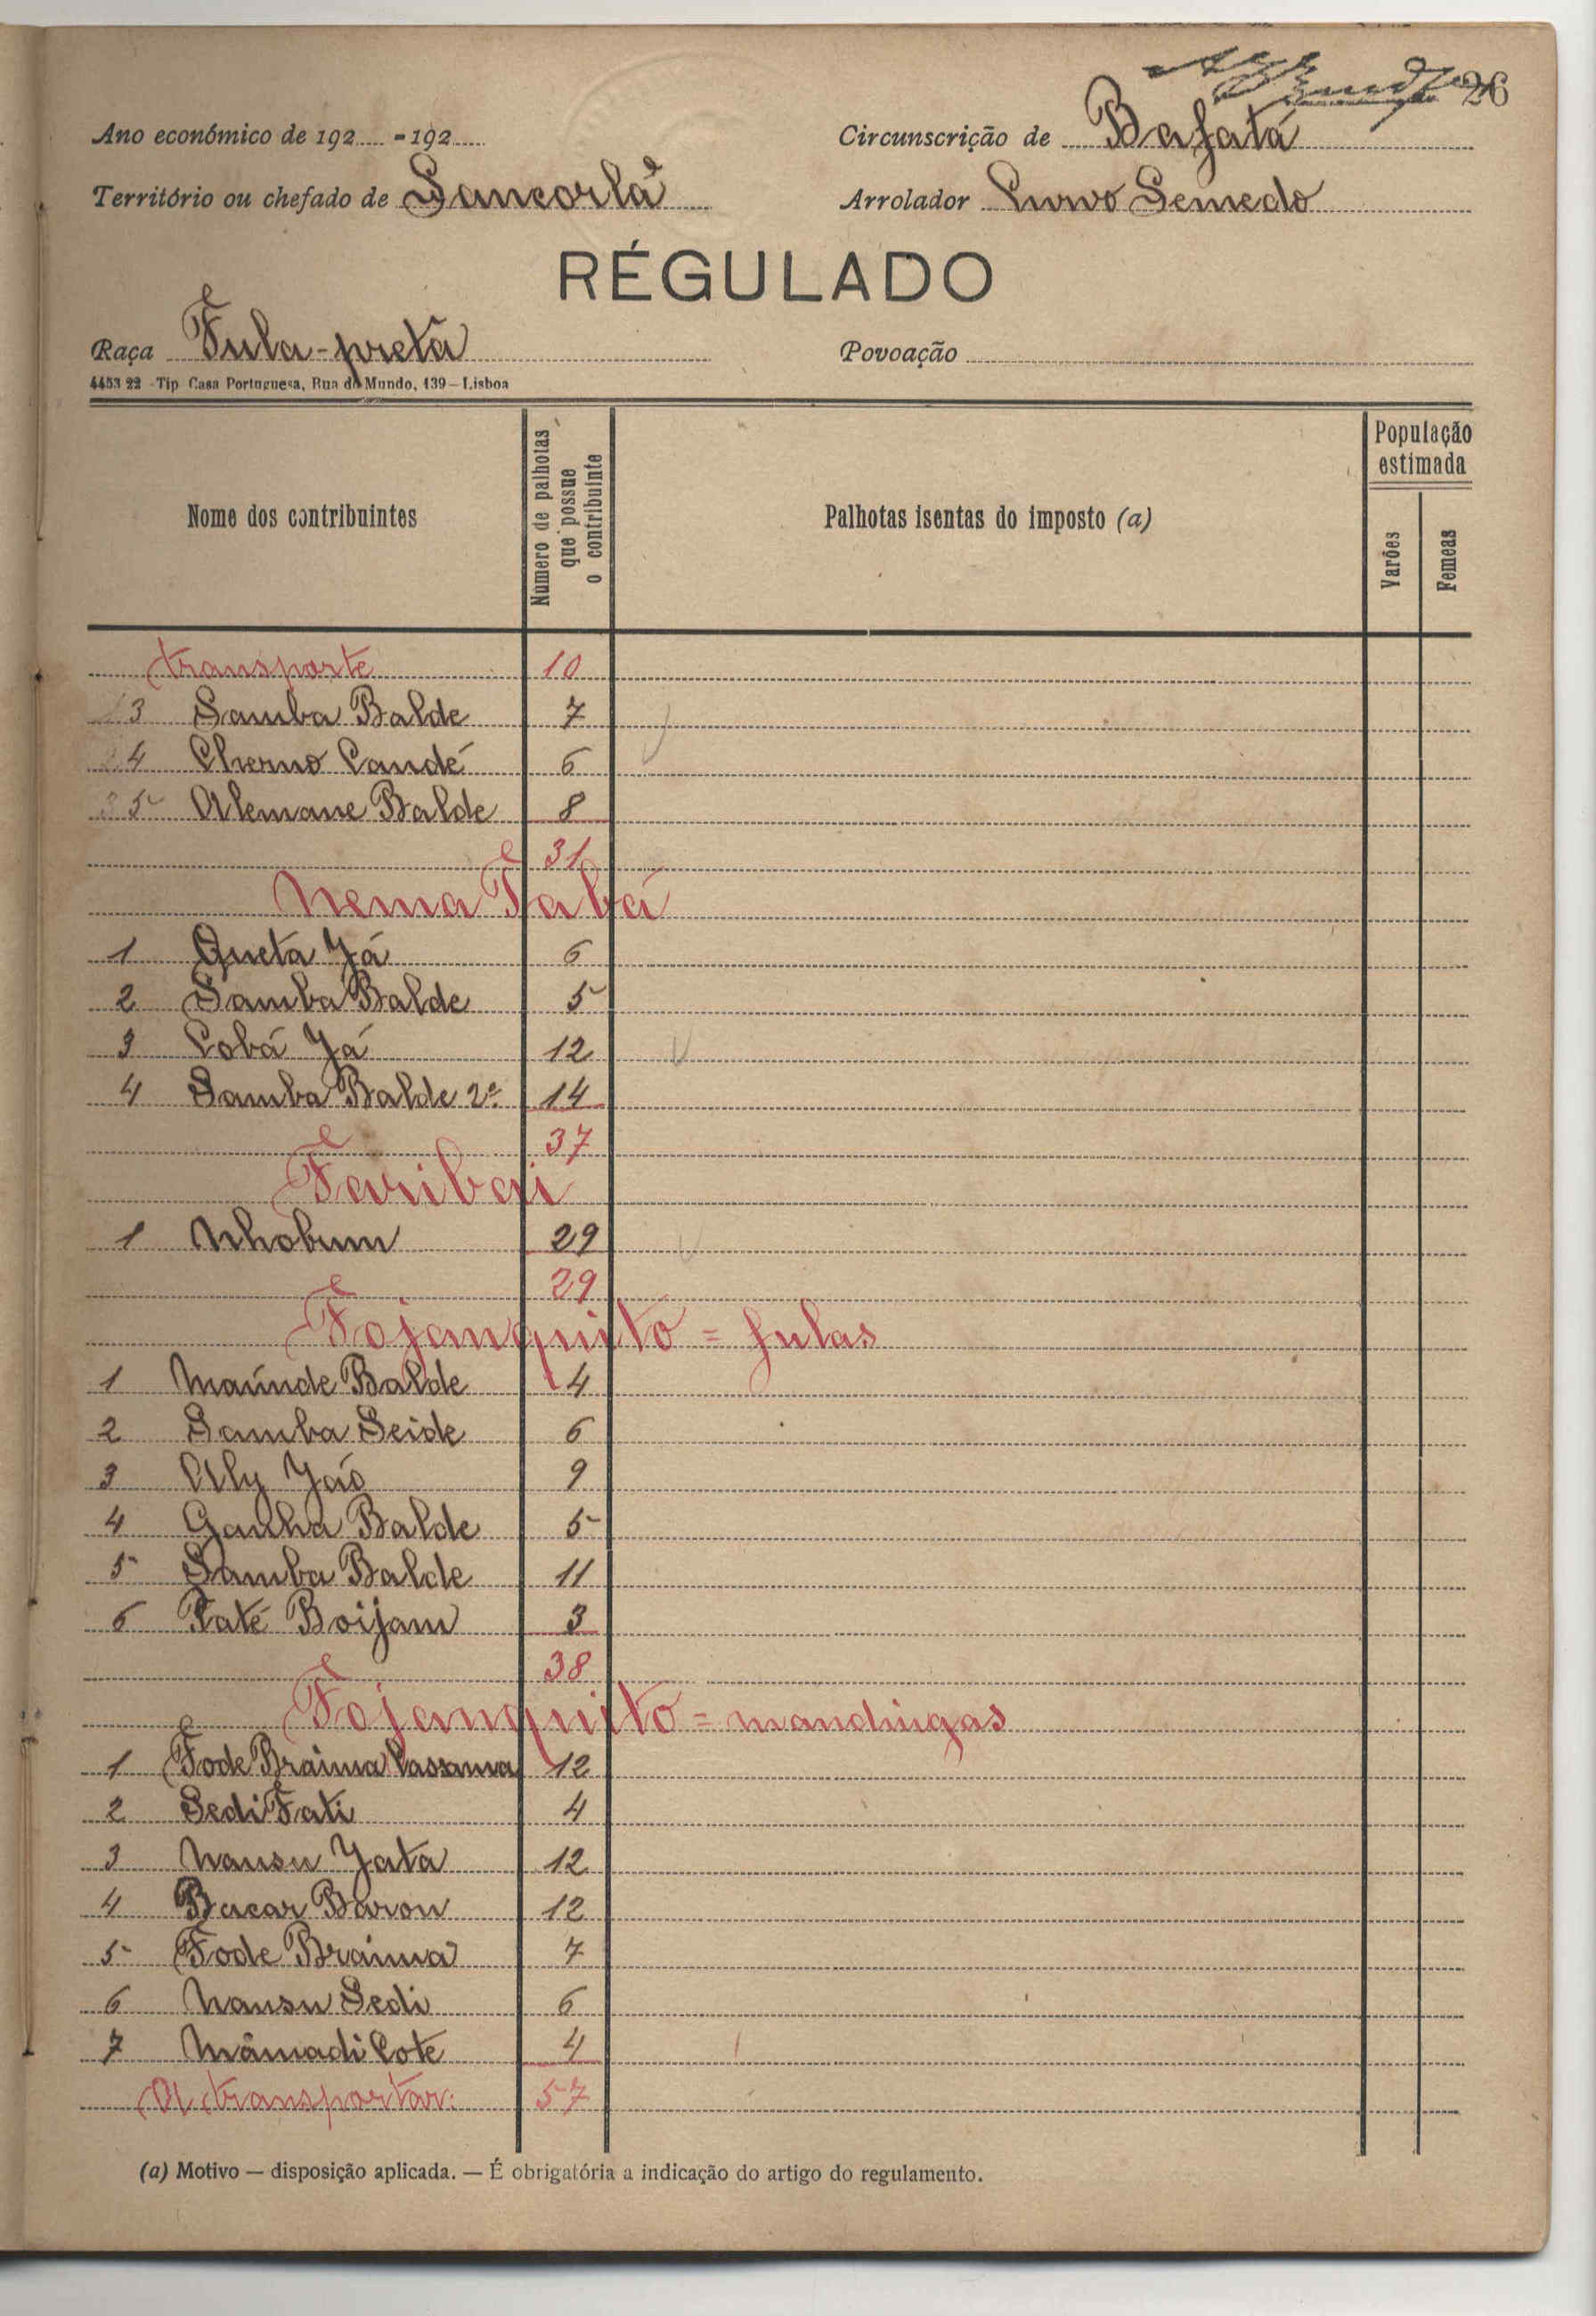 26
Ano económico de 192 -192
Circunscrição de Bafatá
Território ou chefado de Sancorlá
Arrolador Livvo Semedo
RÉGULADO
Raça Fula-preta
Povoação
4453 22 -Tip Casa Portuguesa, Rua do Mundo, 139—Lisboa
Nome dos contribuintes
Número de palhotas que possue o contribuinte
Palhotas isentas do imposto (a)
População estimada
Varões
Femeas
transporte 10
3 Samba Balde 7
4 Cherno Candé 6
5 Alemane Balde 8
31
Nema Tabá
1 Queta Já 6
2 Samba Balde 5
3 Cobá Já 12
4 Samba Balde 2º 14
37
Faribai
1 Nhobum 29
29
Fojanquito = fulas
1 Maúnde Balde 4
2 Samba Seide 6
3 Aly Jaó 9
4 Ganha Balde 5
5 Samba Balde 11
6 Paté Boijam 3
38
Fojanquito = mandingas
1 Fode Braima Cassama 12
2 Sedi Fati 4
3 Nansu Jata 12
4 Bacar Baron 12
5 Fode Braima 7
6 Nansu Sedi 6
7 Mâmadi Cote 4
A transportar: 57
(a) Motivo — disposição aplicada. — É obrigatória a indicação do artigo do regulamento.